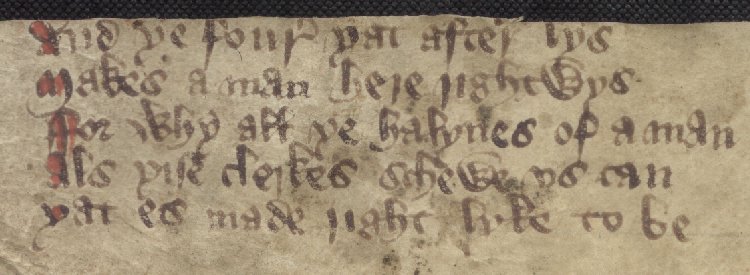 And ye four yat after lys
Makes a man here rightwys
For why all ye halynes of a man
Als yise clerkes schewe vs can
yat es made right lyke to be